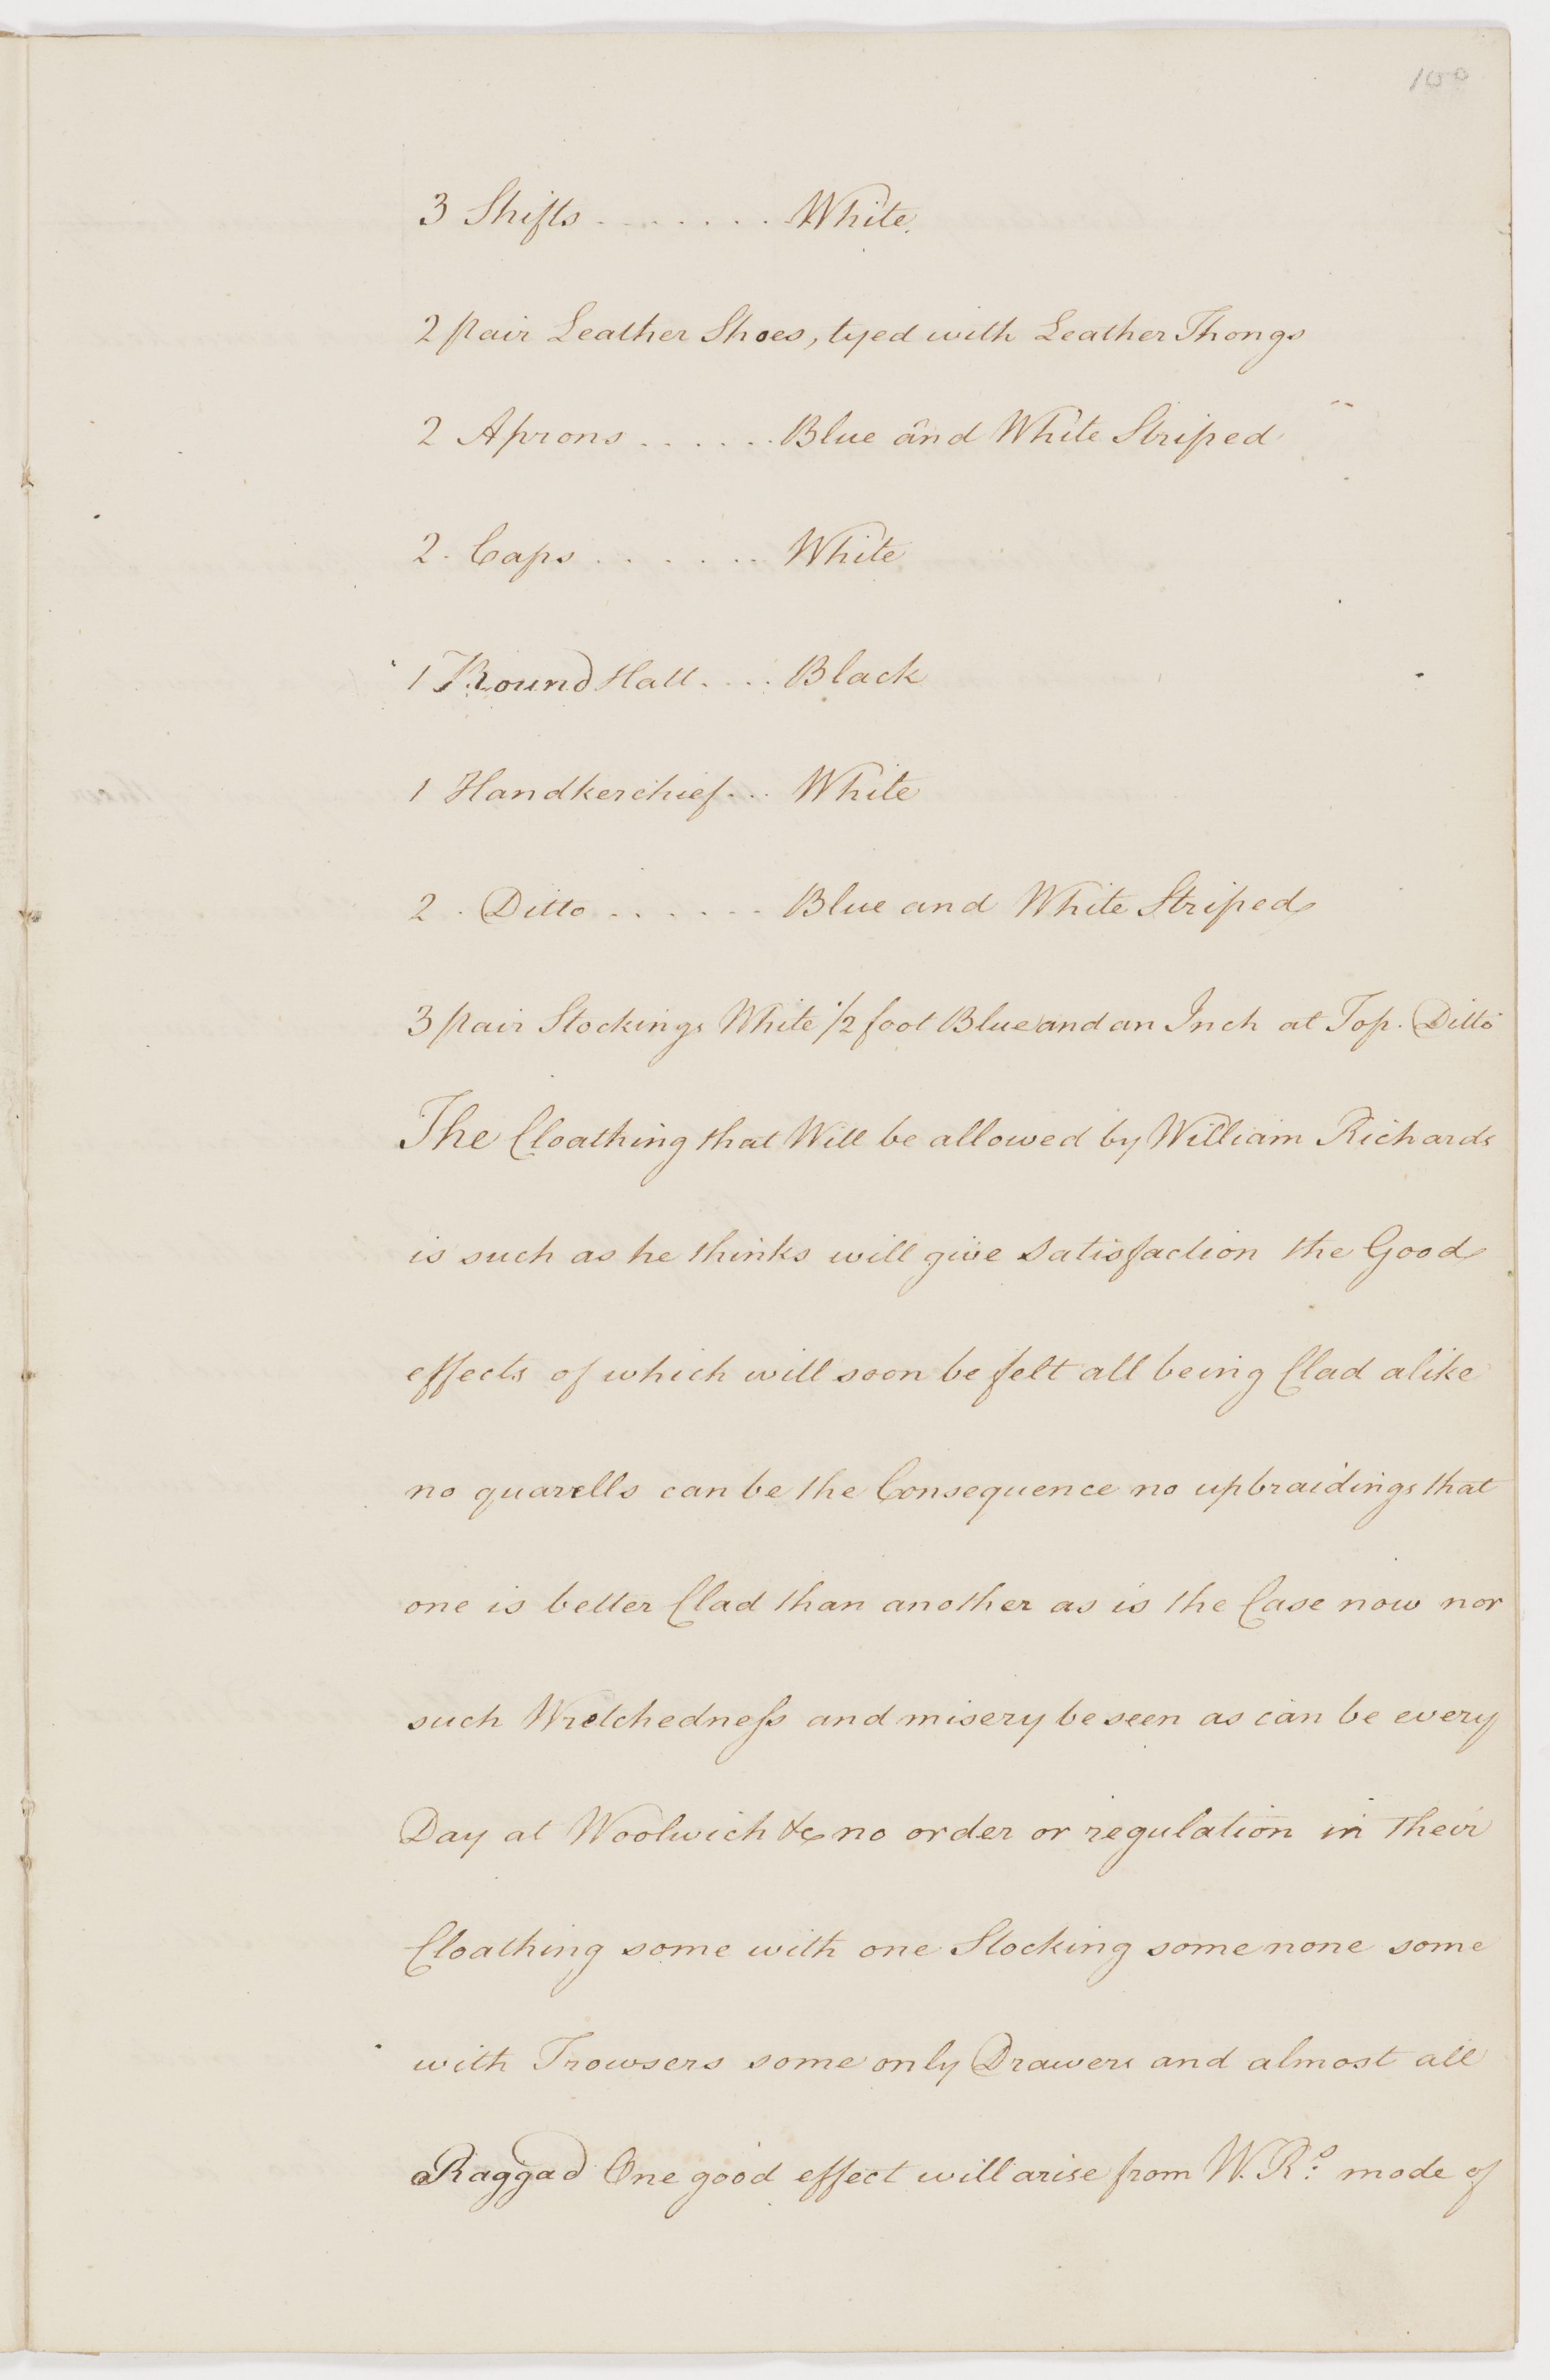 100
3 Shifts . . . . . . . . White
2 pair Leather Shoes, tyed with Leather Thongs
2 Aprons . . . . . . Blue and White Striped
2. Caps . . . . . . White
1 Round Hatt . . . . Black
1 Handkerchief . . . White
2 . Ditto . . . . . . Blue and White Striped
3 pair Stockings White 1/2 foot Blue and an Inch at Top. Ditto
The Cloathing that Will be allowed by William Richards
is such as he thinks will give Satisfaction the Good
effects of which will soon be felt all being Clad alike
no quarells can be the Consequence no upbraidings that
one is better Clad than another as is the Case now nor
such Wretchedness and misery be seen as can be every
Day at Woolwich &c no order or regulation in their
Cloathing some with one Stocking some none some
with Trowsers some only Drawers and almost all
Raggad One good effect will arise from W. R.s mode of